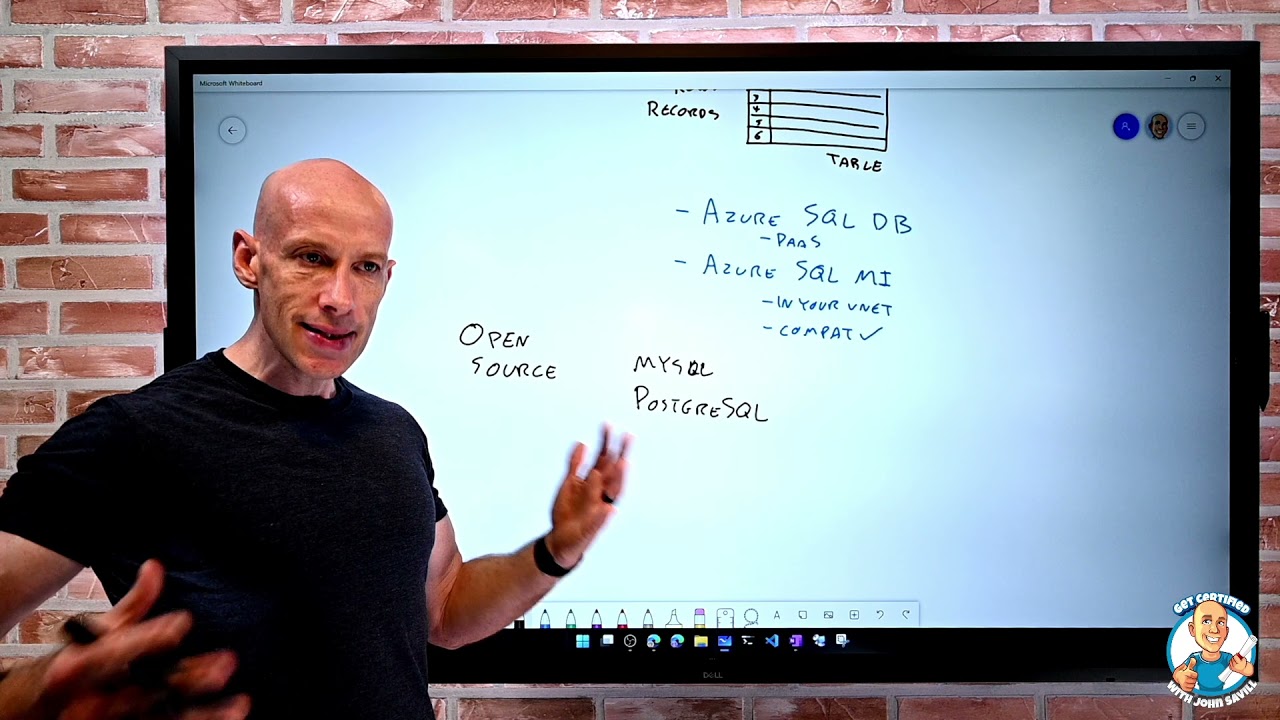 Microsoft Whiteboard
RECORDS
3
4
5
6
TABLE
- AZURE SQL DB
- PAAS
- AZURE SQL MI
- IN YOUR VNET
- COMPAT ✓
OPEN
SOURCE
MYSQL
POSTGRESQL
DELL
GET CERTIFIED
WITH JOHN SAVILL